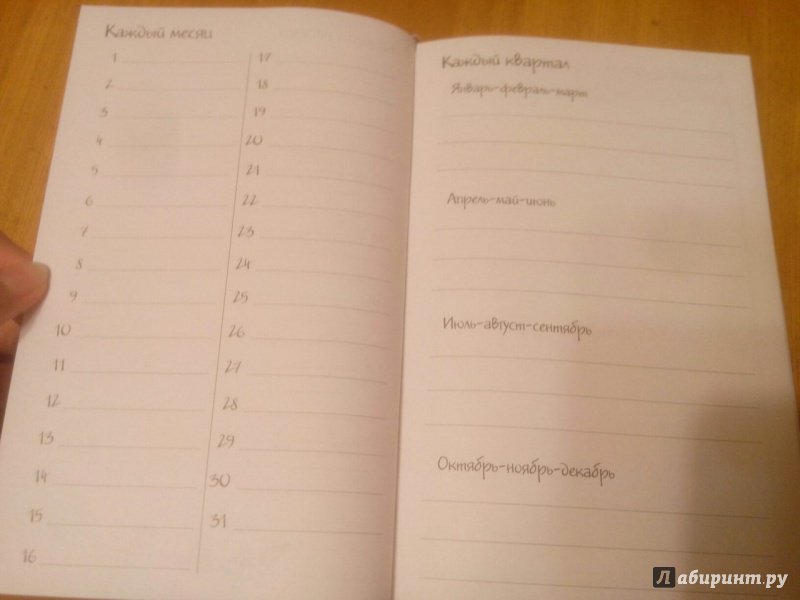 Каждый месяц
1
2
3
4
5
6
7
8
9
10
11
12
13
14
15
16
17
18
19
20
21
22
23
24
25
26
27
28
29
30
31
Каждый квартал
Январь-февраль-март
Апрель-май-июнь
Июль-август-сентябрь
Октябрь-ноябрь-декабрь
Лабиринт.ру